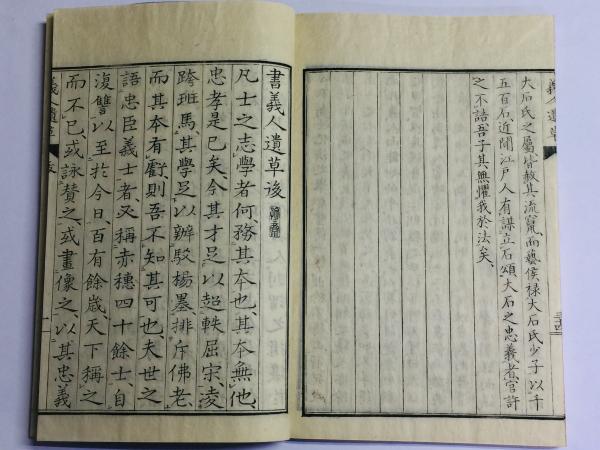 義人遺草
大石氏之屬皆赦其流竄而藝侯禄大石氏少子以千
五百石近聞江戸人有謀立石頌大石之忠義者官許
之不詰吾子其無懼我於法矣
三十四
書義人遺草後
凡士之志學者何務其本也其本無他
忠孝是已矣今其才足以超軼屈宋凌
跨班馬其學足以辨駁楊墨排斥佛老
而其本有虧則吾不知其可也夫世之
語忠臣義士者又稱赤穗四十餘士自
復讐以至於今日百有餘歳天下稱之
而不已或詠贊之或畫像之以其忠義
義人遺草
跋
一